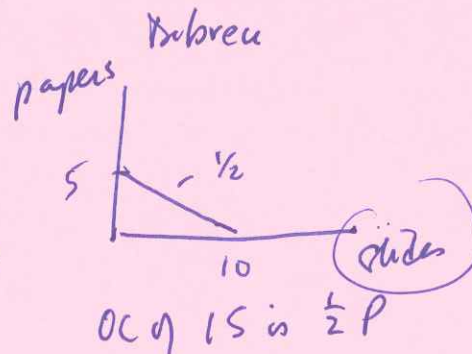 Debreu
papers
5
- 1/2
10
slides
OC of 1S is 1/2 P